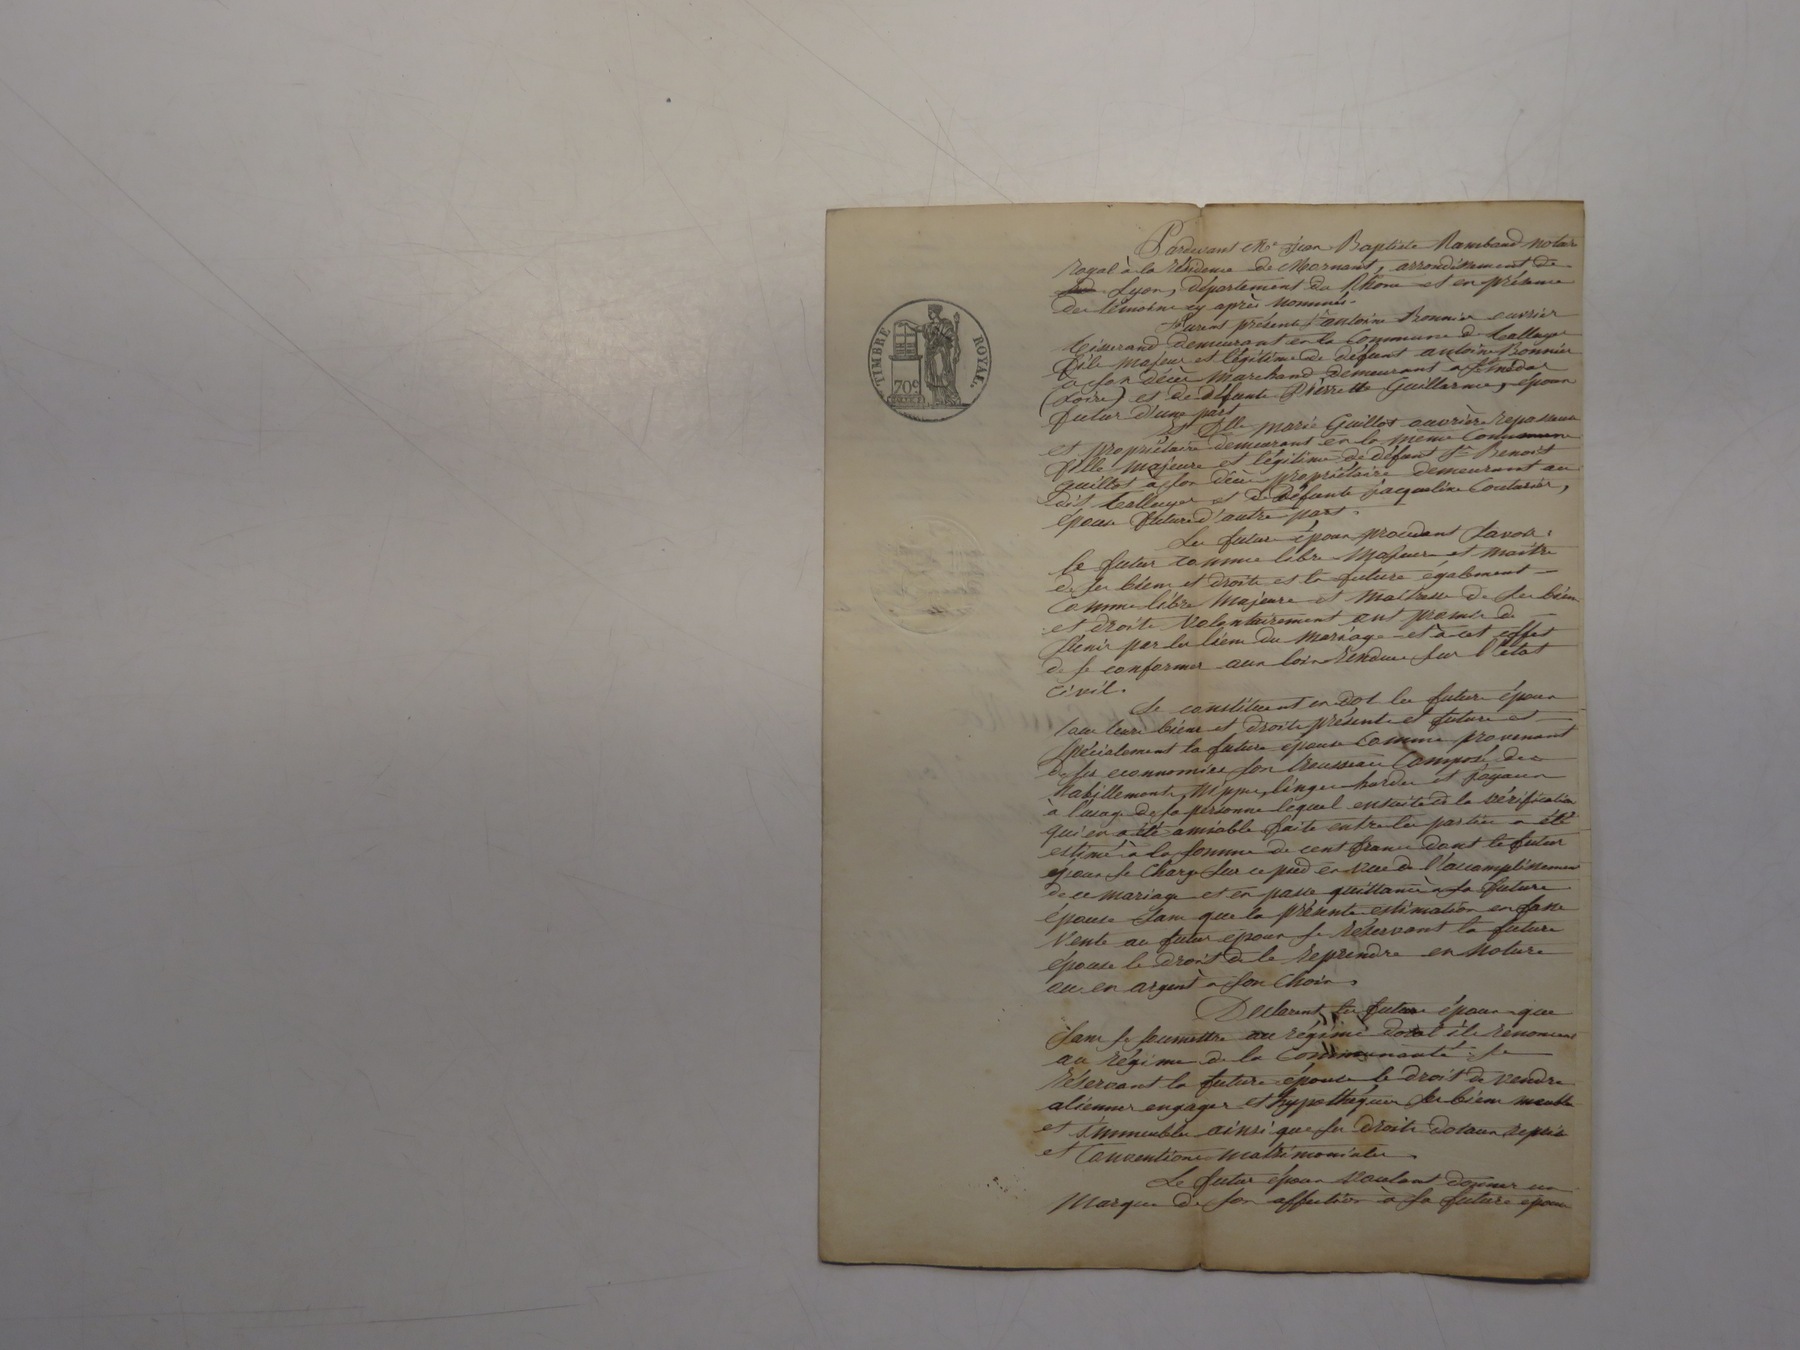 TIMBRE ROYAL.
70c
Pardevant Me Jean Baptiste Rambaud notaire
royal à la résidence de Mornant, arrondissement de
Lyon, département du Rhône et en présence
des témoins cy après nommés.
Furent présents Sr antoine Bonnier ouvrier
tisserand demeurant en la Commune de talluyer
fils majeur et légitime de défunt antoine Bonnier
à son décès marchand demeurant à
(Loire) et de défunte Pierrette Guillarme, époux
futur d'une part
Et Dlle marie Guillot ouvrière repasseuse
et propriétaire demeurant en la même Commune
fille majeure et légitime de défunt Sr Benoit
guillot à son décès propriétaire demeurant au
dit talluyer et de défunte jacqueline Couturier,
épouse future d'autre part.
Les futurs époux procédant savoir:
le futur comme libre Majeur et maitre
de ses biens et droits et la future également
Comme libre Majeure et Maitresse de ses biens
et droits volontairement ont promis de
s'unir par les liens du Mariage et à cet effet
de se conformer aux loix rendues sur l'état
civil.
Se constituent en dot les futurs époux
tous leurs biens et droits présents et futurs et
spécialement la future épouse Comme provenant
de ses economies son trousseau Composé de
habillements, Nippes, linges hardes et joyaux
à l'usage de sa personne lequel ensuite de la vérification
qui en a été amiable faite entre les parties a été
estimé à la somme de cent francs dont le futur
époux se Charge sur ce pied en vue de l'accomplissement
de ce mariage et en passe quittance à sa future
épouse sans que la présente estimation en fasse
Vente au futur époux se réservant la future
épouse le droit de le reprendre en Nature
ou en argent à son Choix.
Declarent les futurs époux que
sans se soumettre au régime dotal ils renoncent
au régime de la Communauté se
réservant la future épouse le droit de vendre
aliener engager et hypothéquer ses biens meubles
et immeubles ainsi que ses droits dotaux reprises
et Conventions matrimoniales.
Le futur époux voulant donner un
Marque de son affection à sa future épouse